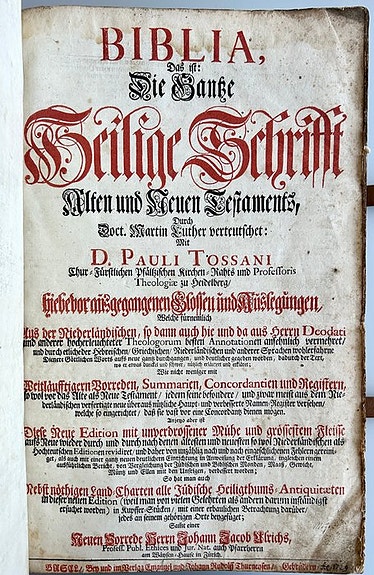 BIBLIA,
Das ist:
Die Gantze
Heilige Schrifft
Alten und Neuen Testaments,
Durch
Doct. Martin Luther verteutschet:
Mit
D. PAULI TOSSANI
Chur-Fürstlichen Pfältzischen Kirchen-Rahts und Professoris
Theologiæ zu Heidelberg/
Hiebevor ausgegangenen Glossen und Auslegungen/
Welche fürnemlich
Aus der Niederländischen, so dann auch hie und da aus Herrn Deodati
und anderer hocherleuchteter Theologorum besten Annotationen ansehnlich vermehret/
und durch etliche der Hebreischen/ Griechischen/ Niederländischen und anderer Sprachen wohlerfahrne
Diener Göttlichen Worts aufs neue gantz durchgangen/ und deutlicher gegeben worden, dadurch der Text,
wo er etwas dunckel und schwer, nützlich erkläret und erläutert;
Wie nicht weniger mit
Weitläufftigern Vorreden, Summarien, Concordantien und Registern,
so wol vor das Alte als Neue Testament/ jedem seine besondere/ und zwar meist aus dem Nie-
derländischen verfertigte neue überaus nützliche Haupt- und verbesserte Namen-Register versehen/
welche so eingerichtet/ daß sie vast vor eine Concordantz dienen mögen.
Anjetzo aber ist
Diese Neue Edition mit unverdrossener Mühe und grössestem Fleisse
aufs Neue wieder durch und durch nach denen ältesten und neuesten so wol Niederländischen als
Hochteutschen Editionen revidiret/ und daher von unzählig nach und nach eingeschlichenen Fehlern gereini-
get, als auch mit einer gantz neuen deutlichen Einrichtung in Anweisung der Erklärung, ingleichem einem
ausführlichen Bericht, von Vergleichung der Jüdischen und Biblischen Monden, Maaß, Gewicht,
Müntz und Ellen mit den Unsrigen, verbessert worden;
So hat man auch
Nebst nöthigen Land-Charten alle Jüdische Heiligthums-Antiquitæten
in dieser neuen Edition (weil man von vielen Gelehrten als andern darum inständigst
ersuchet worden) in Kupfer-Stücken/ mit einer erbaulichen Betrachtung darüber/
jedes an seinem gehörigen Orte beygefüget;
Samt einer
Neuen Vorrede Herrn Johann Jacob Ulrichs,
Profess. Publ. Ethices und Jur. Nat. auch Pfarrherrn
am Wäysen-Hause in Zürich.
BASEL, Bey und in Verlag Emanuel und Johann Rudolff Thurneysen, Gebrüdern,